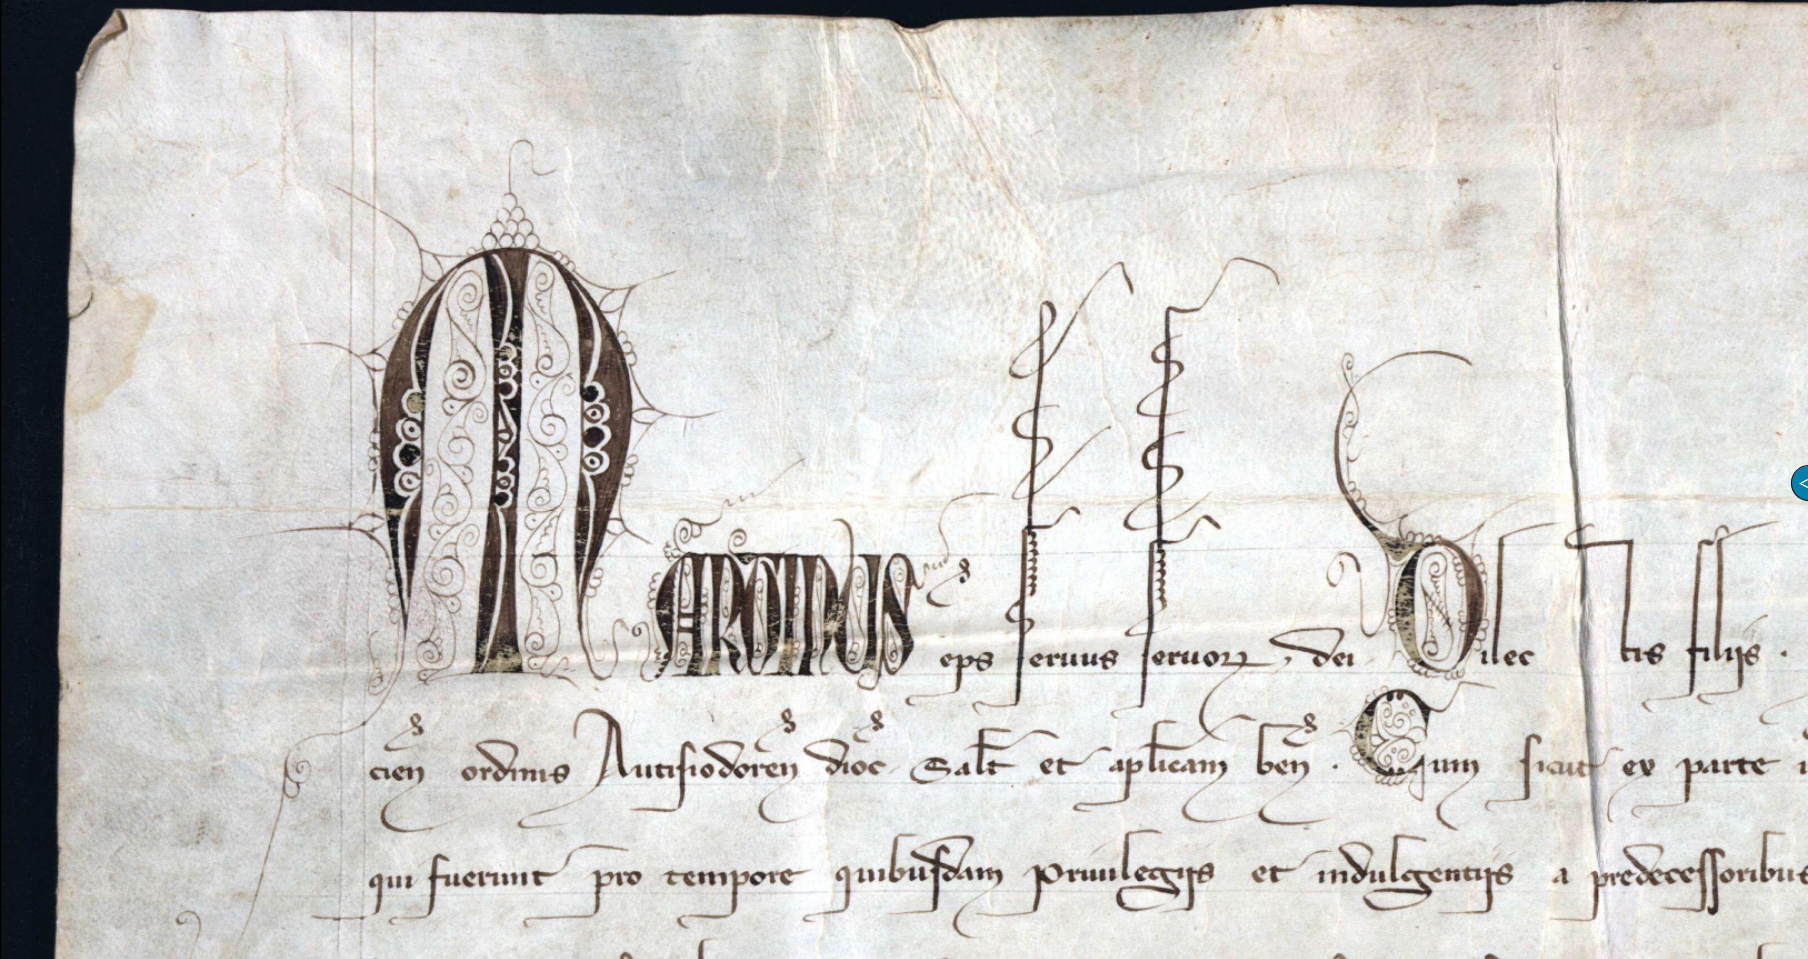 MARTINUS eps seruus seruorꝝ dei Dilectis filiis .
cien̄ ordinis Autisiodoren̄ dioc̄ . Salt̄ et aplicam ben̄ . Cum sicut ex parte
qui fuerunt pro tempore quibusdam priuilegiis et indulgentiis a predecessoribus